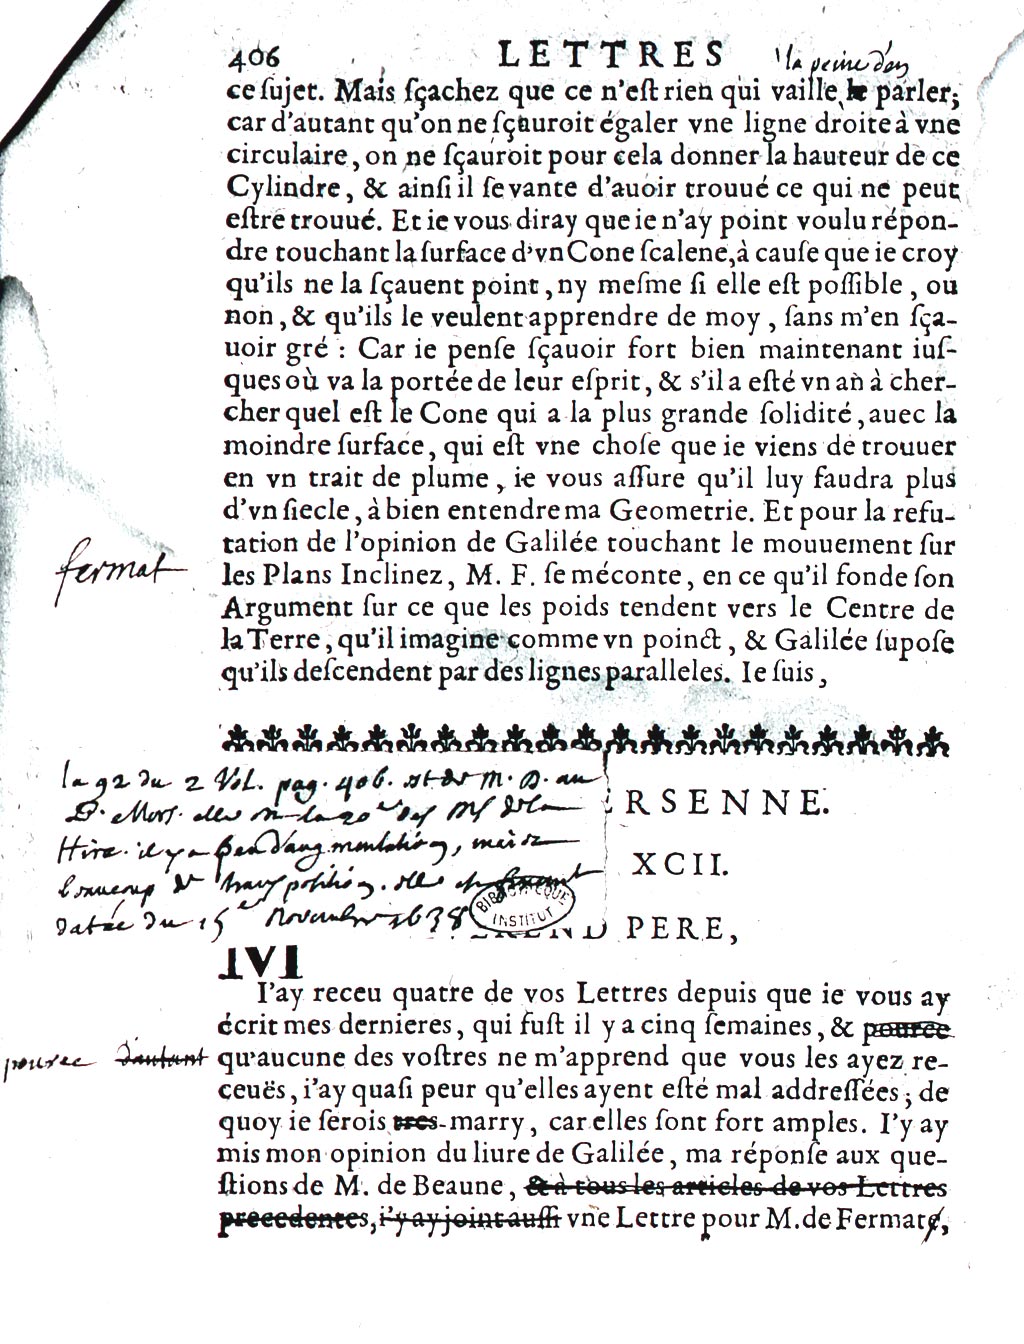 406 LETTRES la peine d'en
ce ſujet. Mais ſçachez que ce n'eſt rien qui vaille le parler;
car d'autant qu'on ne ſçauroit égaler vne ligne droite à vne
circulaire, on ne ſçauroit pour cela donner la hauteur de ce
Cylindre, & ainſi il ſe vante d'auoir trouué ce qui ne peut
eſtre trouué. Et ie vous diray que ie n'ay point voulu répon-
dre touchant la ſurface d'vn Cone ſcalene, à cauſe que ie croy
qu'ils ne la ſçauent point, ny meſme ſi elle eſt poſſible, ou
non, & qu'ils le veulent apprendre de moy, ſans m'en ſça-
uoir gré : Car ie penſe ſçauoir fort bien maintenant iuſ-
ques où va la portée de leur eſprit, & s'il a eſté vn an à cher-
cher quel eſt le Cone qui a la plus grande ſolidité, auec la
moindre ſurface, qui eſt vne choſe que ie viens de trouuer
en vn trait de plume, ie vous aſſure qu'il luy faudra plus
d'vn ſiecle, à bien entendre ma Geometrie. Et pour la refu-
tation de l'opinion de Galilée touchant le mouuement ſur
fermat
les Plans Inclinez, M. F. ſe méconte, en ce qu'il fonde ſon
Argument ſur ce que les poids tendent vers le Centre de
la Terre, qu'il imagine comme vn poinct, & Galilée ſupoſe
qu'ils deſcendent par des lignes paralleles. Ie ſuis,
la 92 du 2 Vol. pag. 406. est de M. D. au
P. Mers. elle la 20e des Ms de la
Hire. il y a peu d'augmentation, mais
beaucoup de transposition. elle est
datée du 15e Novembre 1638
RSENNE.
XCII.
BIBLIOTHEQUE INSTITUT
PERE,
I'ay receu quatre de vos Lettres depuis que ie vous ay
écrit mes dernieres, qui fuſt il y a cinq ſemaines, & pource
pource d'autant qu'aucune des voſtres ne m'apprend que vous les ayez re-
ceuës, i'ay quaſi peur qu'elles ayent eſté mal addreſſées; de
quoy ie ſerois tres-marry, car elles ſont fort amples. I'y ay
mis mon opinion du liure de Galilée, ma réponſe aux que-
ſtions de M. de Beaune, & à tous les articles de vos Lettres
precedentes, i'y ay joint auſſi vne Lettre pour M. de Fermat,